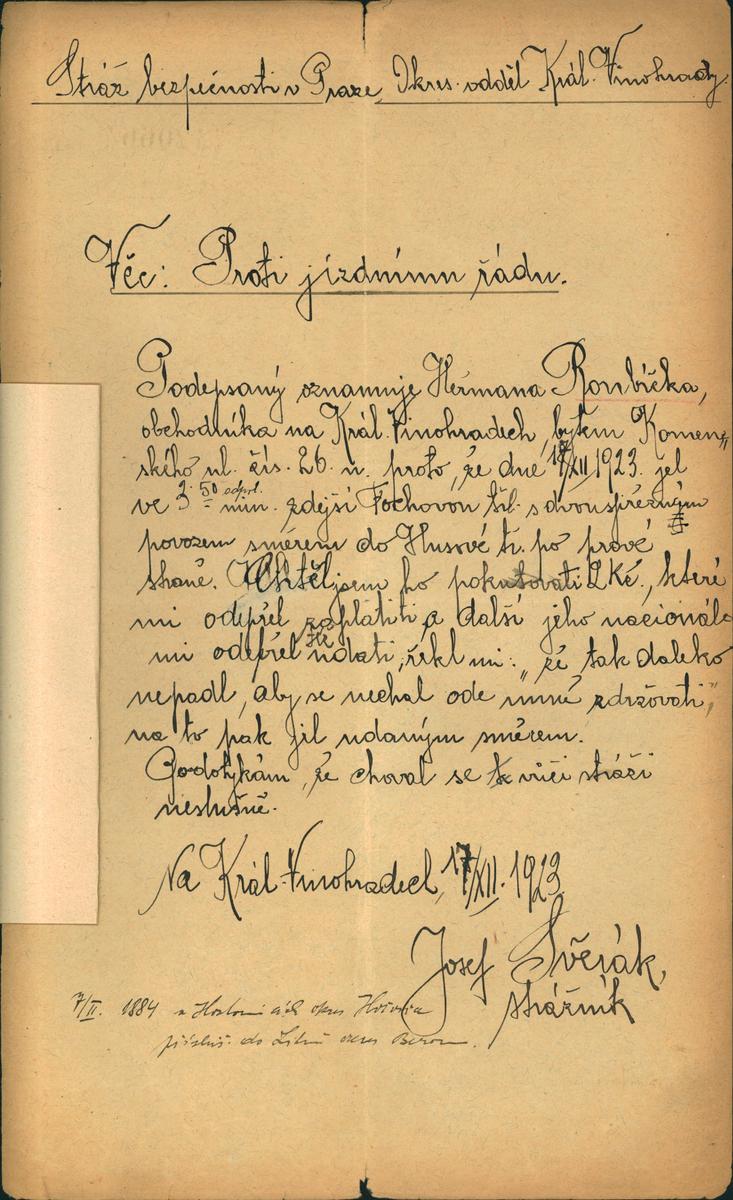 Stráž bezpečnosti v Praze, Okres. odděl Král. Vinohrady.
Věc: Proti jízdnímu řádu.
Podepsaný oznamuje Heřmana Roubíčka,
obchodníka na Král. Vinohradech, bytem Komen„
ského ul. čís. 26. n. proto, že dne 17/XII 1923. jel
ve 3 50 odpol. min. zdejší Fochovou tř. s dvouspřežným
povozem směrem do Husově tř. po pravé
straně. Chtěl jsem ho pokutovati 2 Kč., které
mi odepřel zaplatiti a další jeho nacionále
mi odepřel též udati, řekl mi: „že tak daleko
nepadl, aby se nechal ode mně zdržovati„
na to pak jel udaným směrem.
Podotýkám, že choval se vůči stráži
neslušně.
Na Král. Vinohradech, 17/XII. 1923
Josef Švěrák,
strážník
7/II. 1884 v okres
přísluš. do Litně okres Beroun.